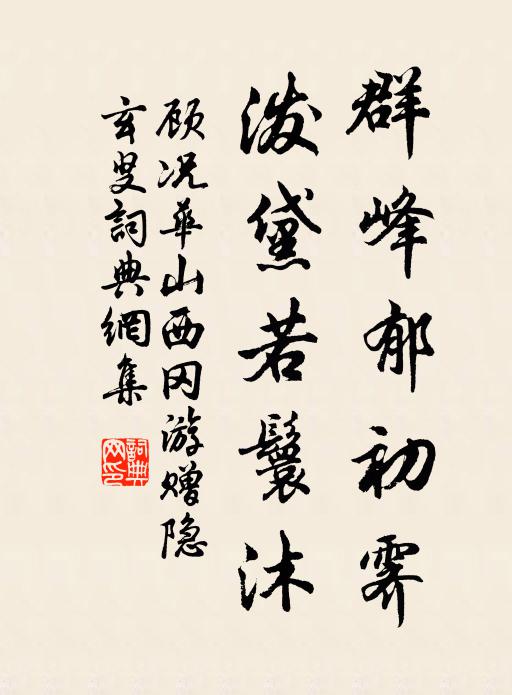 群峰郁初霁
泼黛若鬟沐
顾况华山西冈游赠隐
玄叟詞典網集
詞典網印